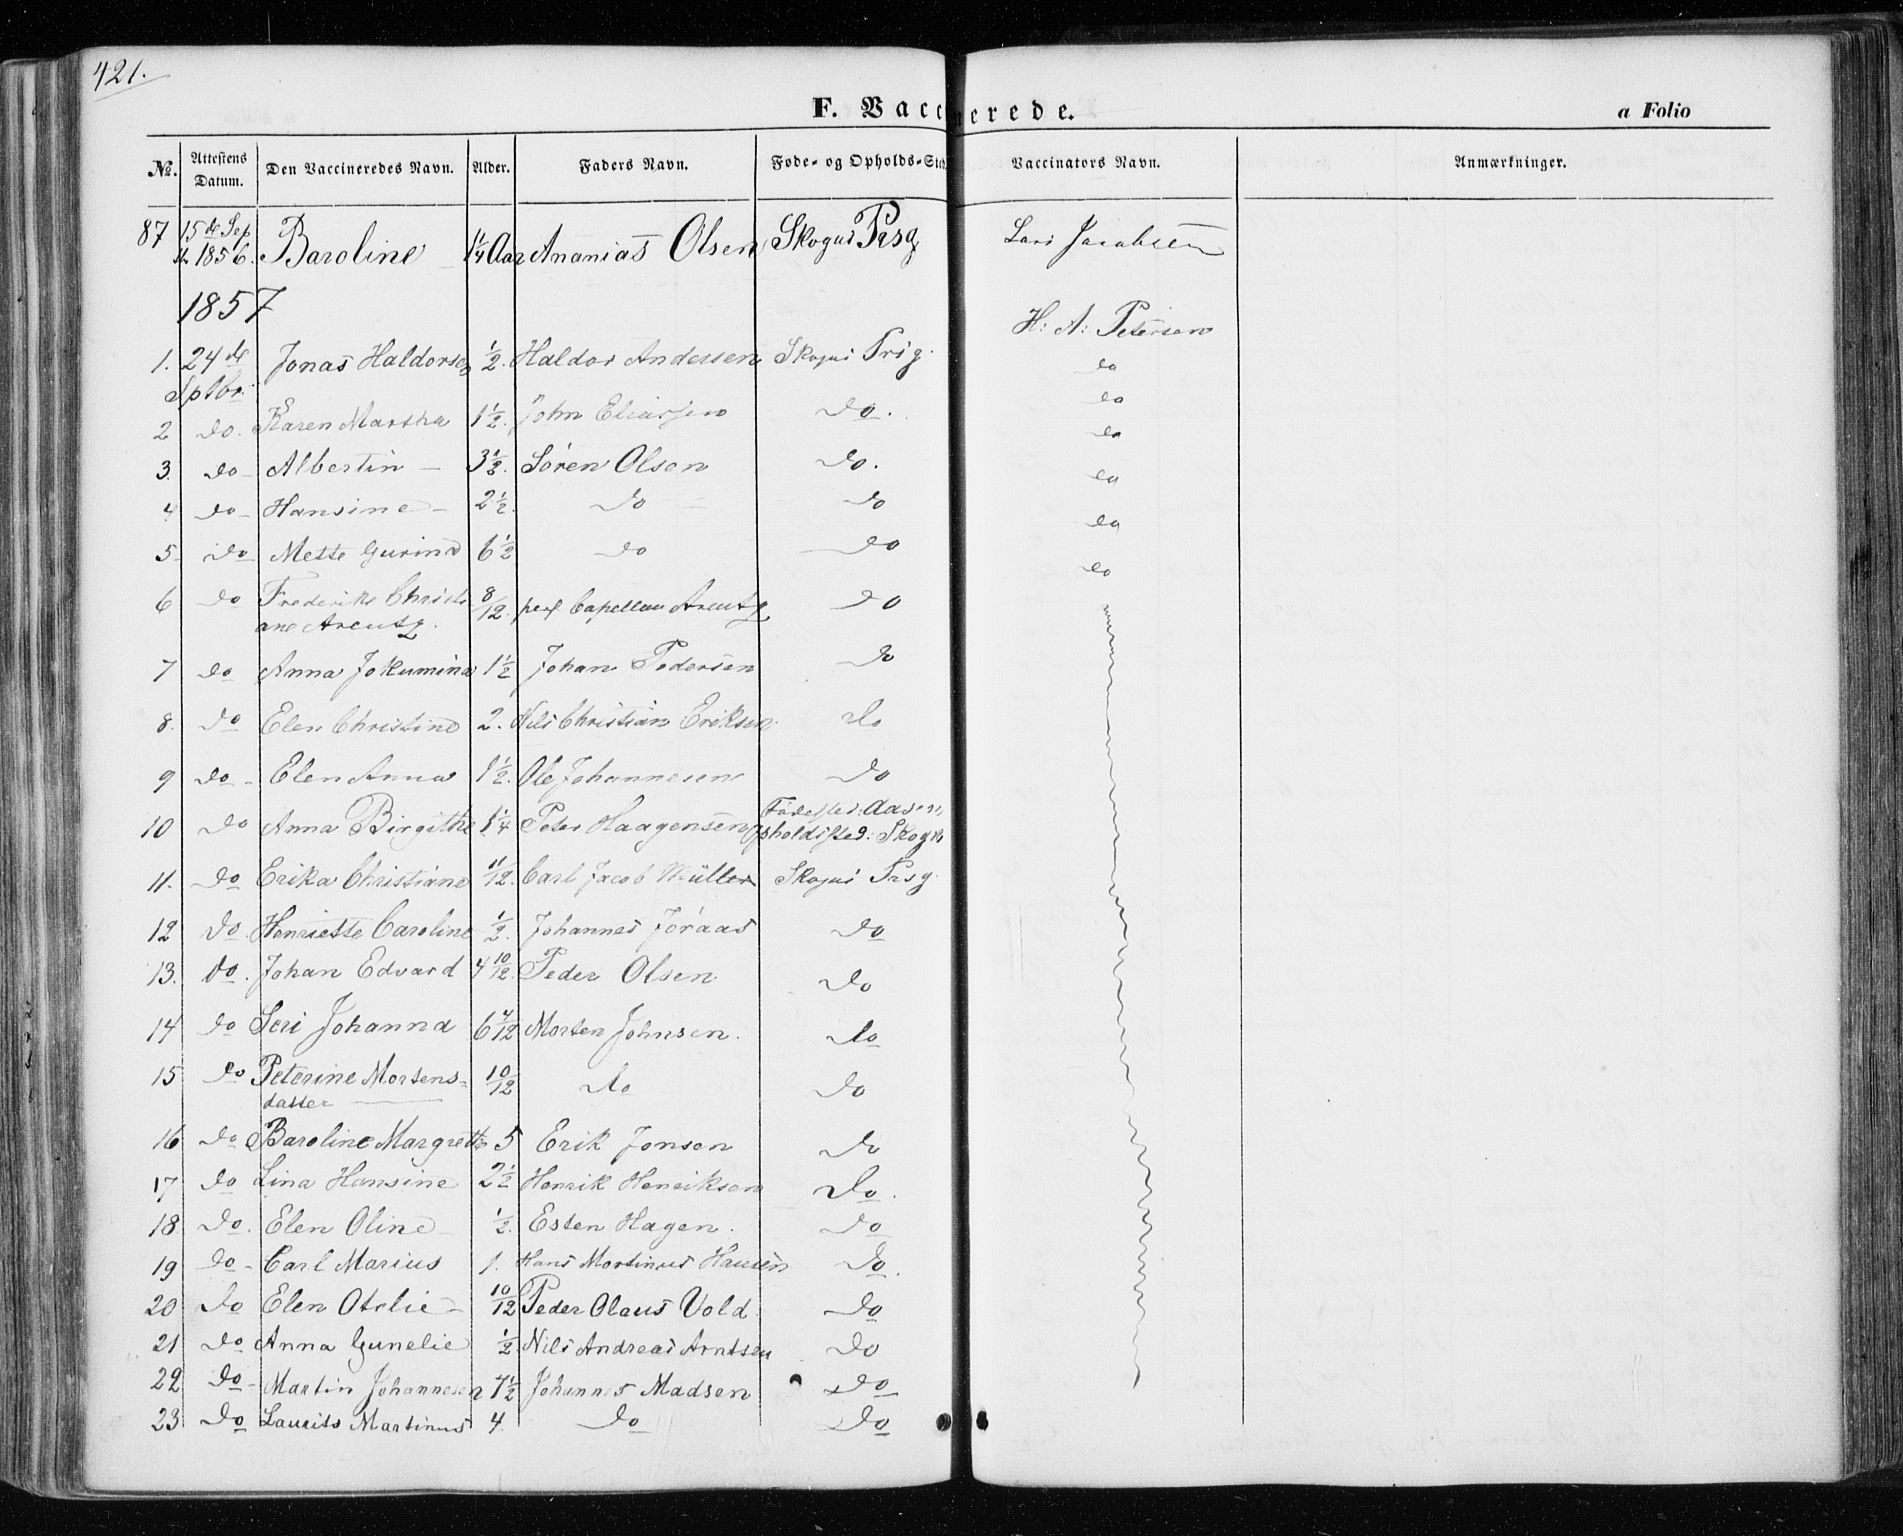 421.
F. Vaccinerede.
a Folio
No. Attestens Datum. Den Vaccineredes Navn. Alder. Faders Navn. Føde- og Opholds-Sted Vaccinators Navn. Anmærkninger.
87 15de Sep 1856. Baroline 1¼ Aar Ananias Olsen Skogns Prsg Lars Jacobsen
1857
1. 24de Sptbr. Jonas Haldorsen ½. Haldor Andersen Skogns Prsg. H: A: Petersen
2 do. Karen Martha 1½. John Eliassen do. do
3. do Albertin 3½. Sören Olsen do. do
4 do Hansine 2½. do do do
5 do Mette Gurina 6½ do do do
6 do Frederike Christiane Arentz. 8/12. Capellan Arentz do do
7 do Anna Jokumina 1½ Johan Pedersen do
8. do Elen Christine 2. Nils Christian Eriksen do
9 do Elen Anna 1½. Ole Johannesen do
10 do Anna Birgithe 1¼ Peter Haagensen Födested: Aasen, Opholdssted: Skogn
11. do Erika Christiane 11/12. Carl Jacob Müller Skogns Prsg.
12 do Henriette Caroline ½. Johannes Jöraas do
13. do. Johan Edvard 4 10/12. Peder Olsen do
14 do Seri Johanna 6 4/12 Morten Johnsen. do
15 do Peterine Mortens-
datter 10/12 do do
16 do Baroline Margrethe 5 Erik Jonsen do
17 do Lina Hansine 2½ Henrik Henriksen do.
18 do. Elen Oline ½. Esten Hagen. do
19 do Carl Marius 1. Hans Mortinus Hansen do.
20 do Elen Otelie 10/12 Peder Olaus Vold do
21 do Anna Gunelie ½ Nils Andreas Arntsen do
22 do Martin Johannesen 7½ Johannes Madsen do
23 do Laurits Martinus 4 do do